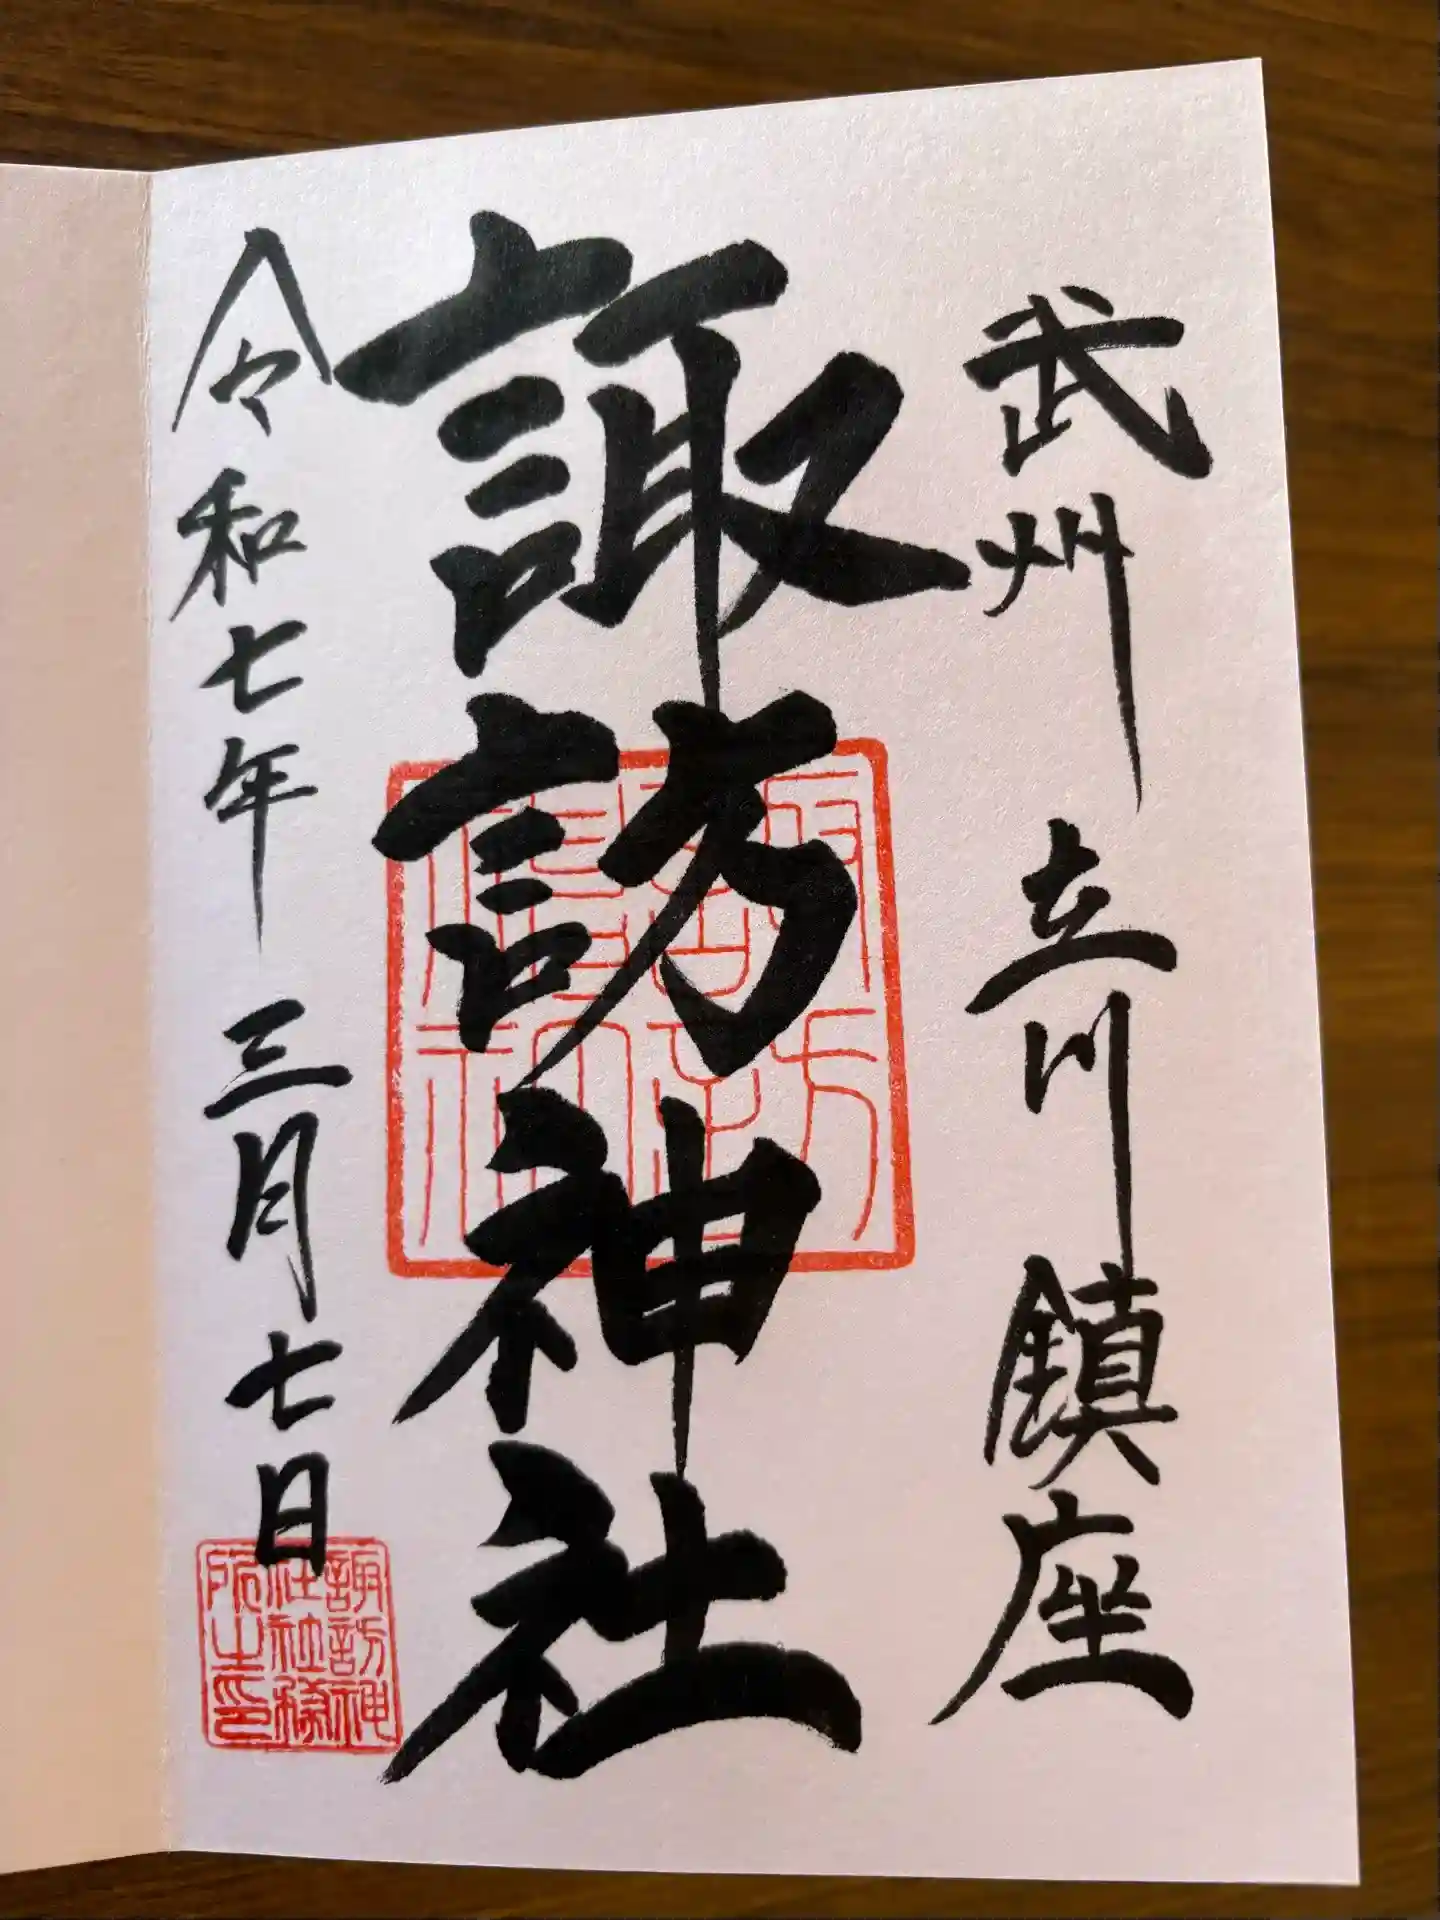 武州 立川 鎮座
諏訪神社
令和七年 三月七日
諏訪神
社社務
所之印